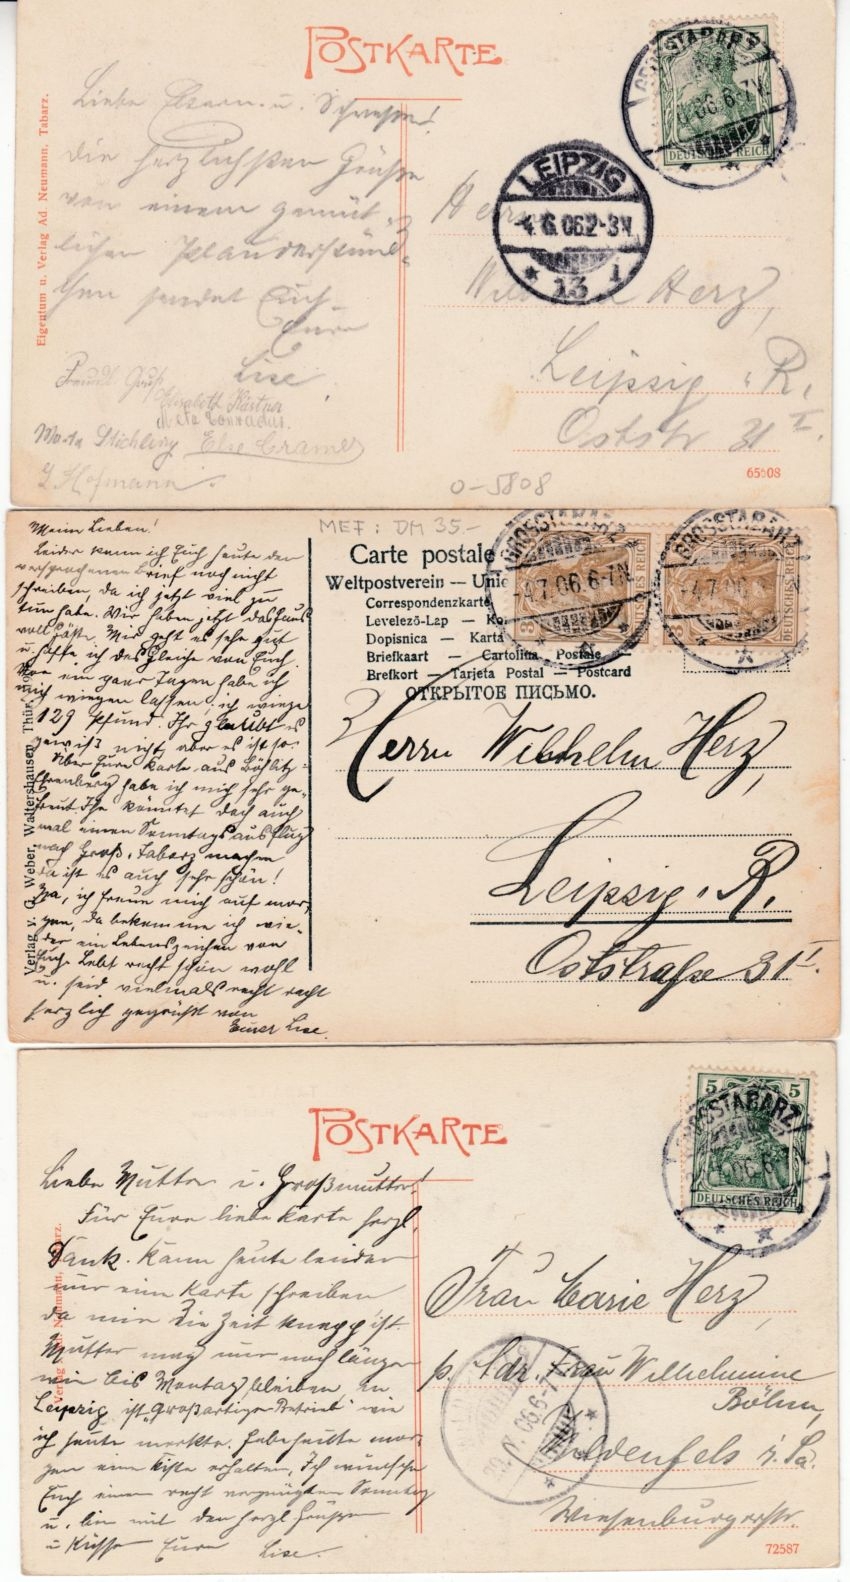 POSTKARTE
GROSSTABARZ
06.6-7N.
DEUTSCHES REICH
Eigentum u. Verlag Ad. Neumann, Tabarz.
Liebe Eltern u. Schwester!
die herzlichsten Grüße
von einem gemüt-
lichen Plauderstünd-
chen sendet Euch
Eure
Lise
LEIPZIG
4.6.06.2-3N.
13
1
Herrn
Wilhelm Herz,
Leipzig-R.
Oststr 31 I.
Freundl. Gruß
Elisabeth Kästner
Meta Conradus.
Marta Stichling Else Cramer
Hofmann
65808
0-5808
Meine Lieben!
Leider kann ich Euch heute den
versprochenen Brief noch nicht
schreiben, da ich jetzt viel zu
tun habe. Wir haben jetzt das Haus
voll Gäste. Mir geht es sehr gut
u. hoffe ich das Gleiche von Euch.
Vor ein paar Tagen habe ich
mich wiegen lassen, ich wiege
129 Pfund. Ihr glaubt es
gewiß nicht, aber es ist so.
Über Eure Karte aus Böhlitz-
Ehrenberg habe ich mich sehr ge-
freut. Ihr könntet doch auch
mal einen Sonntagsausflug
nach Groß-Tabarz machen
da ist es auch sehr schön!
Ja, ich freue mich auf mor-
gen, da bekomme ich wie-
der ein Lebenszeichen von
Euch. Lebt recht schön wohl
u. seid vielmals recht recht
herzlich gegrüßt von
Eurer Lise.
Verlag v. G. Weber, Waltershausen Thür.
MEF: DM 35.-
Carte postale
Weltpostverein — Unio
Correspondenzkarte
Levelező-Lap — Ko
Dopisnica — Karta
Briefkaart — Cartolina Postale
Brefkort — Tarjeta Postal — Postcard
ОТКРЫТОЕ ПИСЬМО.
GROSSTABARZ
4.7.06.6-7N.
GROSSTABARZ
4.7.06.
DEUTSCHES REICH
Herrn Wilhelm Herz,
Leipzig-R.
Oststraße 31 I.
POSTKARTE
5 5
GROSSTABARZ
06.6-7
DEUTSCHES REICH
Liebe Mutter u. Großmutter!
Für Eure liebe Karte herzl.
Dank. Kann heute leider
nur eine Karte schreiben
da mir die Zeit knapp ist.
Mutter mag nur noch länger
wie bis Montag bleiben, in
Leipzig ist "Großartiger Betrieb" wie
ich heute merkte. Habe heute mor-
gen eine Kiste erhalten. Ich wünsche
Euch einen recht vergnügten Sonntag
u. bin mit den herzl. Grüßen
u. Küssen Eure Lise.
Frau Marie Herz,
p. Adr. Frau Wilhelmine
Böhm,
Wildenfels i. Sa.
Wiesenburgerstr.
06.6-7N
72587